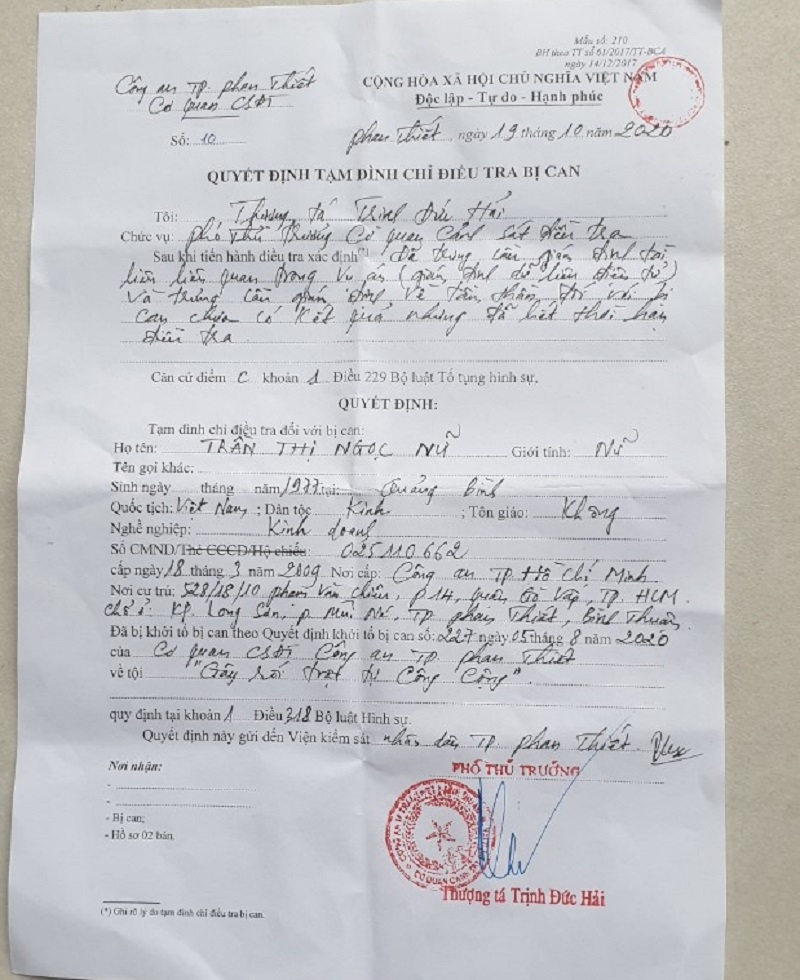 Mẫu số: 210
BH theo TT số 61/2017/TT-BCA
ngày 14/12/2017
Công an TP. Phan Thiết
Cơ quan CSĐT
CỘNG HÒA XÃ HỘI CHỦ NGHĨA VIỆT NAM
Độc lập - Tự do - Hạnh phúc
Số: 10
Phan Thiết, ngày 19 tháng 10 năm 2020
QUYẾT ĐỊNH TẠM ĐÌNH CHỈ ĐIỀU TRA BỊ CAN
Tôi: Thượng tá Trịnh Đức Hải
Chức vụ: Phó Thủ trưởng Cơ quan Cảnh sát điều tra
Sau khi tiến hành điều tra xác định(*) Đã trưng cầu giám định tài
liệu liên quan trong vụ án (giám định dữ liệu điện tử)
và trưng cầu giám định về tâm thần đối với bị
can chưa có kết quả nhưng đã hết thời hạn
điều tra.
Căn cứ điểm c khoản 1 Điều 229 Bộ luật Tố tụng hình sự,
QUYẾT ĐỊNH:
Tạm đình chỉ điều tra đối với bị can:
Họ tên: TRẦN THỊ NGỌC NỮ Giới tính: Nữ
Tên gọi khác:
Sinh ngày tháng năm 1977 tại: Quảng Bình
Quốc tịch: Việt Nam ; Dân tộc Kinh ; Tôn giáo: Không
Nghề nghiệp: Kinh doanh
Số CMND/Thẻ CCCD/Hộ chiếu: 025110662
cấp ngày 18 tháng 3 năm 2009 Nơi cấp: Công an TP. Hồ Chí Minh
Nơi cư trú: 528/18/10 Phạm Văn Chiêu, P14, Quận Gò Vấp, TP. HCM.
Chỗ ở: KP. Long Sơn, P. Mũi Né, TP Phan Thiết, Bình Thuận
Đã bị khởi tố bị can theo Quyết định khởi tố bị can số: 227 ngày 05 tháng 8 năm 2020
của Cơ quan CSĐT Công an TP. Phan Thiết
về tội "Gây rối trật tự Công Cộng".
quy định tại khoản 1 Điều 318 Bộ luật Hình sự.
Quyết định này gửi đến Viện kiểm sát nhân dân TP. Phan Thiết.
Nơi nhận:
-
-
- Bị can;
- Hồ sơ 02 bản.
PHÓ THỦ TRƯỞNG
Thượng tá Trịnh Đức Hải
(*) Ghi rõ lý do tạm đình chỉ điều tra bị can.